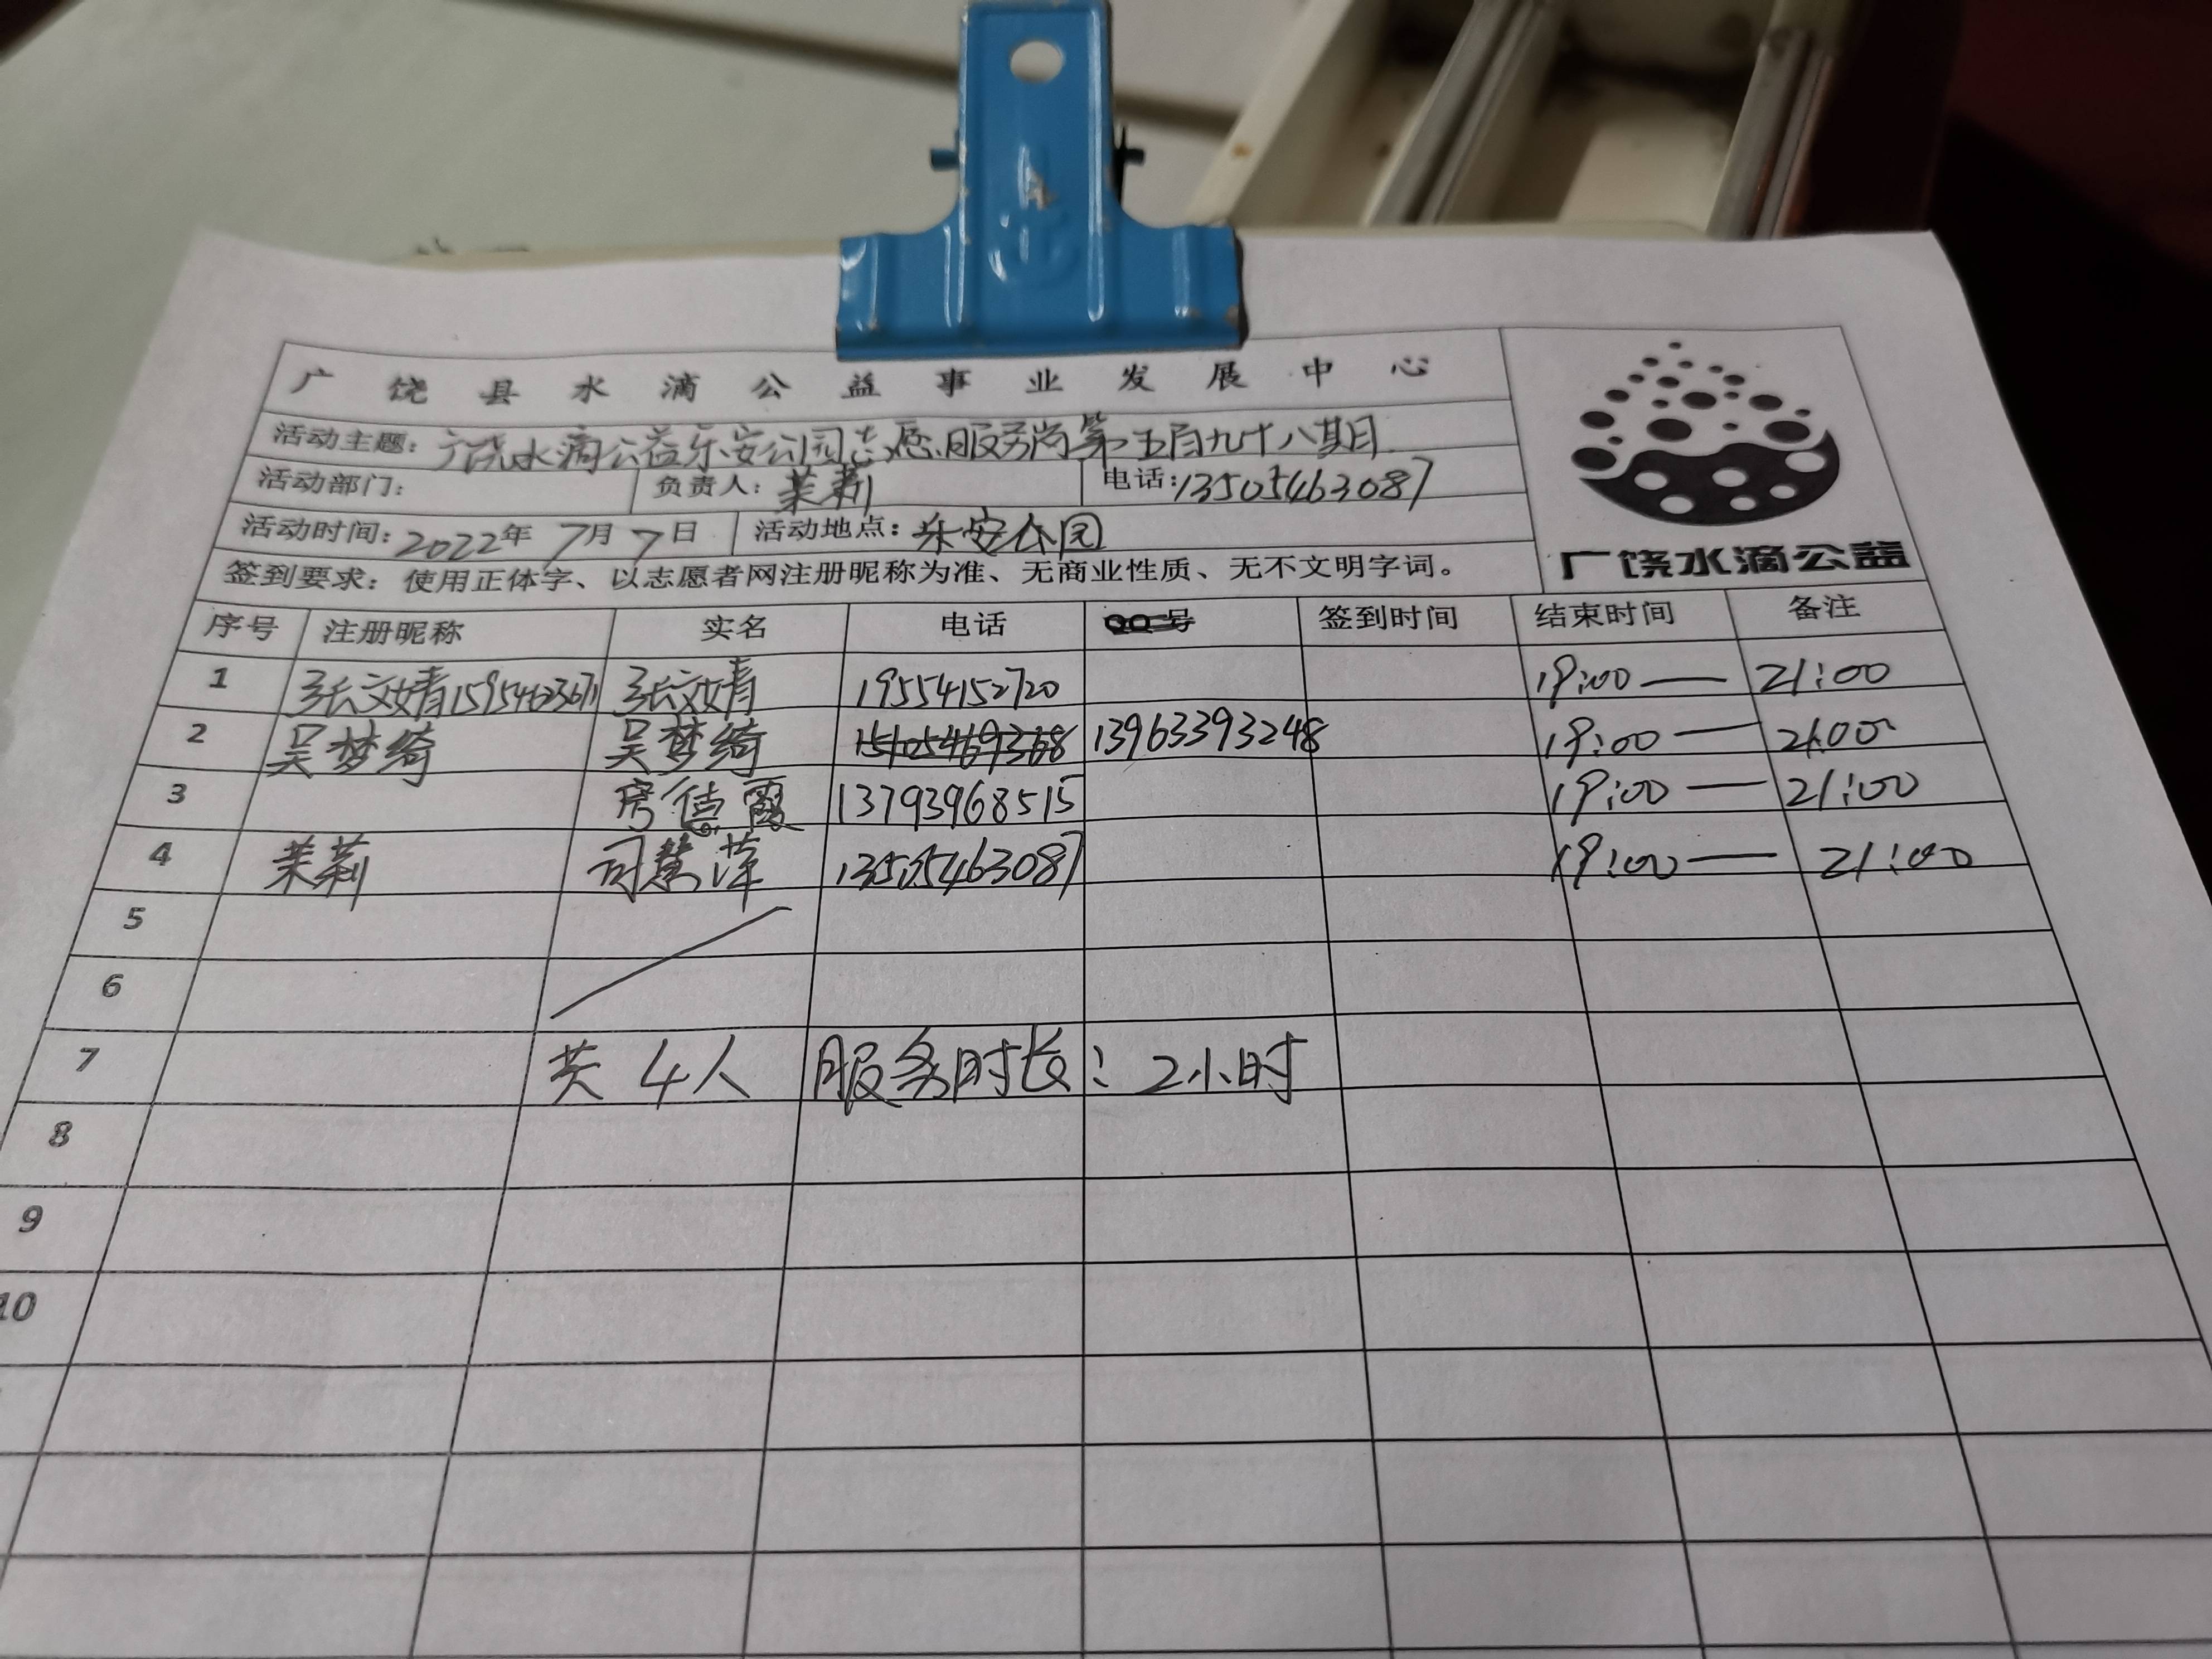 广饶县水滴公益事业发展中心
活动主题：广饶水滴公益乐安公园志愿服务岗第五百九十八期
活动部门： 负责人：茉莉 电话：13505463087
活动时间：2022年7月7日 活动地点：乐安公园
签到要求：使用正体字、以志愿者网注册昵称为准、无商业性质、无不文明字词。
广饶水滴公益
序号 注册昵称 实名 电话 QQ号 签到时间 结束时间 备注
1 张文婧15954623671 张文婧 19554152720 19:00—21:00
2 吴梦绮 吴梦绮 15105469368 13963393248 19:00—21:00
3 房德霞 13793968515 19:00—21:00
4 茉莉 司慧萍 13505463087 19:00—21:00
5
6
7 共4人 服务时长：2小时
8
9
10